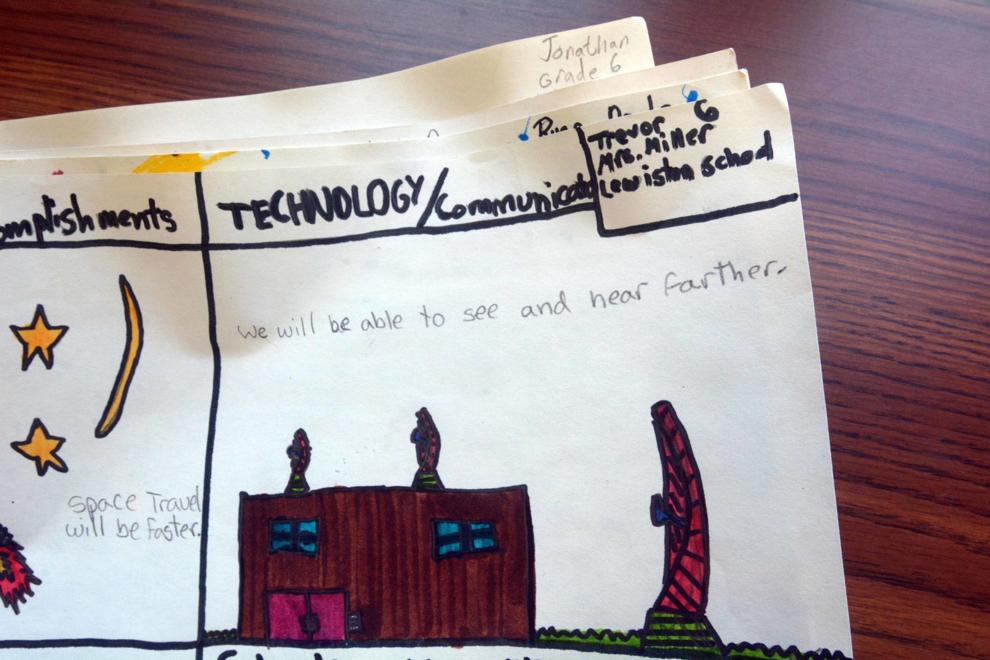 Jonathan
Grade 6
Trevor 6
Mrs. Miller
Lewiston School
omplishments
TECHNOLOGY/Communicat
We will be able to see and hear farther.
space Travel
will be faster.